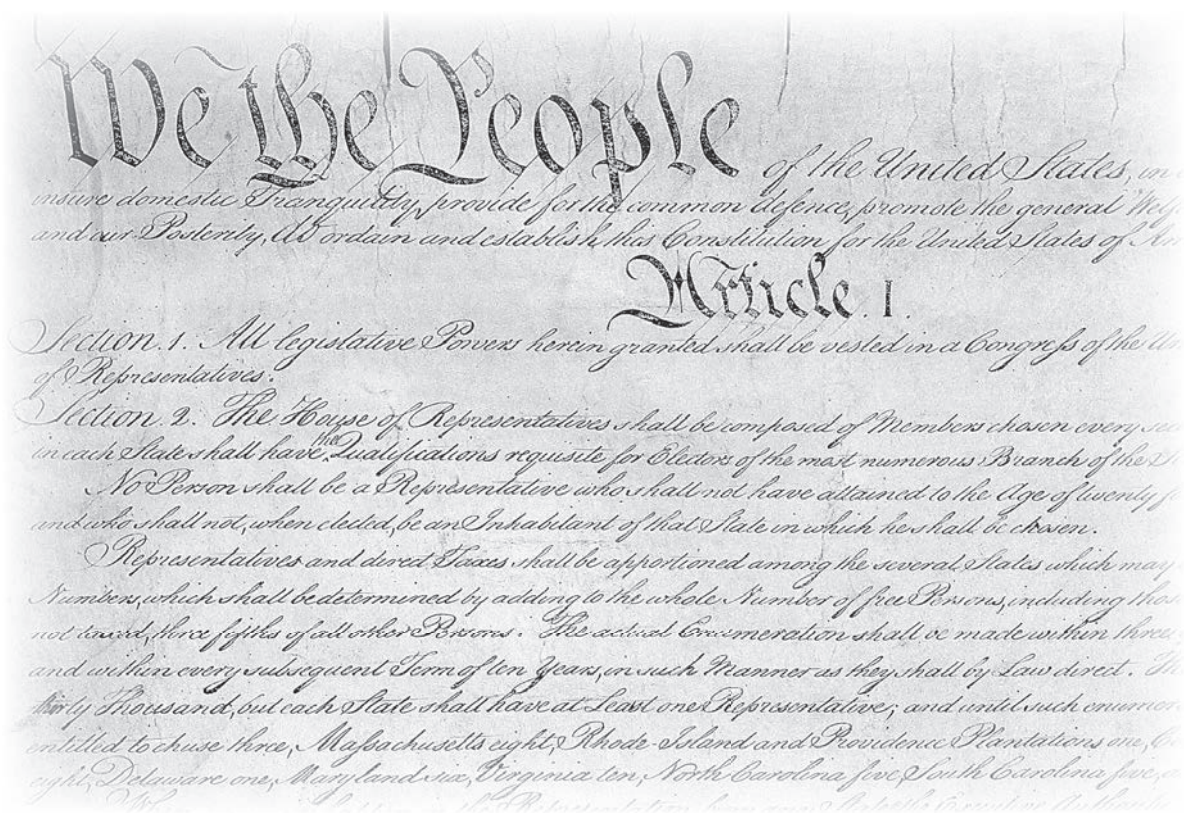 We the People of the United States, in
insure domestic Tranquility, provide for the common defence, promote the general
and our Posterity, do ordain and establish this Constitution for the United States of
Article. I.
Section. 1. All legislative Powers herein granted shall be vested in a Congress of the
of Representatives.
Section. 2. The House of Representatives shall be composed of Members chosen every
in each State shall have the Qualifications requisite for Electors of the most numerous Branch of the
No Person shall be a Representative who shall not have attained to the Age of twenty
and who shall not, when elected, be an Inhabitant of that State in which he shall be chosen.
Representatives and direct Taxes shall be apportioned among the several States which may
Numbers, which shall be determined by adding to the whole Number of free Persons, including those
not taxed, three fifths of all other Persons. The actual Enumeration shall be made within three
and within every subsequent Term of ten Years, in such Manner as they shall by Law direct. The
thirty Thousand, but each State shall have at Least one Representative; and until such
entitled to chuse three, Massachusetts eight, Rhode-Island and Providence Plantations one,
eight, Delaware one, Maryland six, Virginia ten, North Carolina five, South Carolina five,
When in the Representation from any State, the Executive Authority